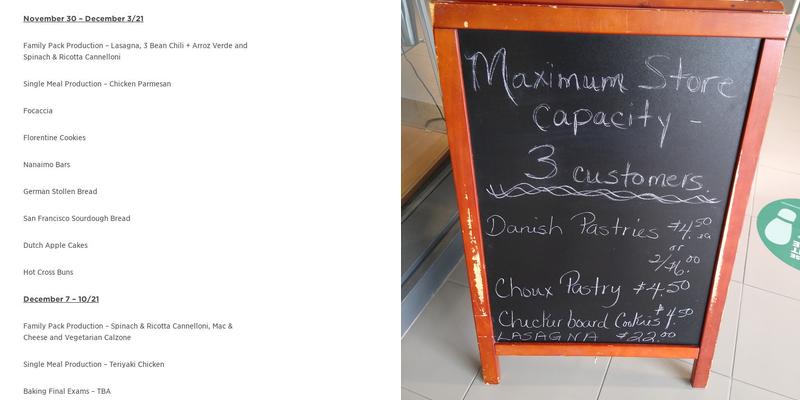 November 30 – December 3/21
Family Pack Production – Lasagna, 3 Bean Chili + Arroz Verde and
Spinach & Ricotta Cannelloni
Single Meal Production – Chicken Parmesan
Focaccia
Florentine Cookies
Nanaimo Bars
German Stollen Bread
San Francisco Sourdough Bread
Dutch Apple Cakes
Hot Cross Buns
December 7 – 10/21
Family Pack Production – Spinach & Ricotta Cannelloni, Mac &
Cheese and Vegetarian Calzone
Single Meal Production – Teriyaki Chicken
Baking Final Exams – TBA
Maximum Store
Capacity -
3 customers.
Danish Pastries $4.50 ea
or
2/$6.00
Choux Pastry $4.50
Checkerboard Cookies $4.50
LASAGNA $22.00